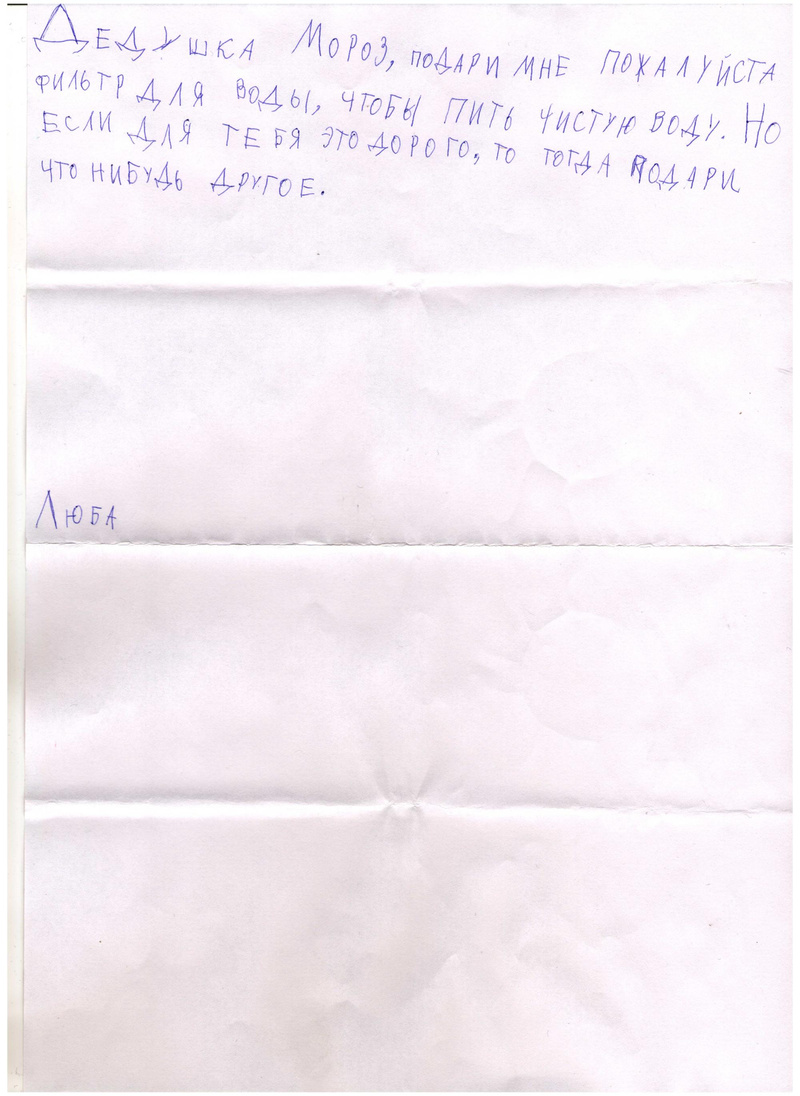 Дедушка Мороз, подари мне пожалуйста
фильтр для воды, чтобы пить чистую воду. Но
если для тебя это дорого, то тогда подари
что нибудь другое.
Люба